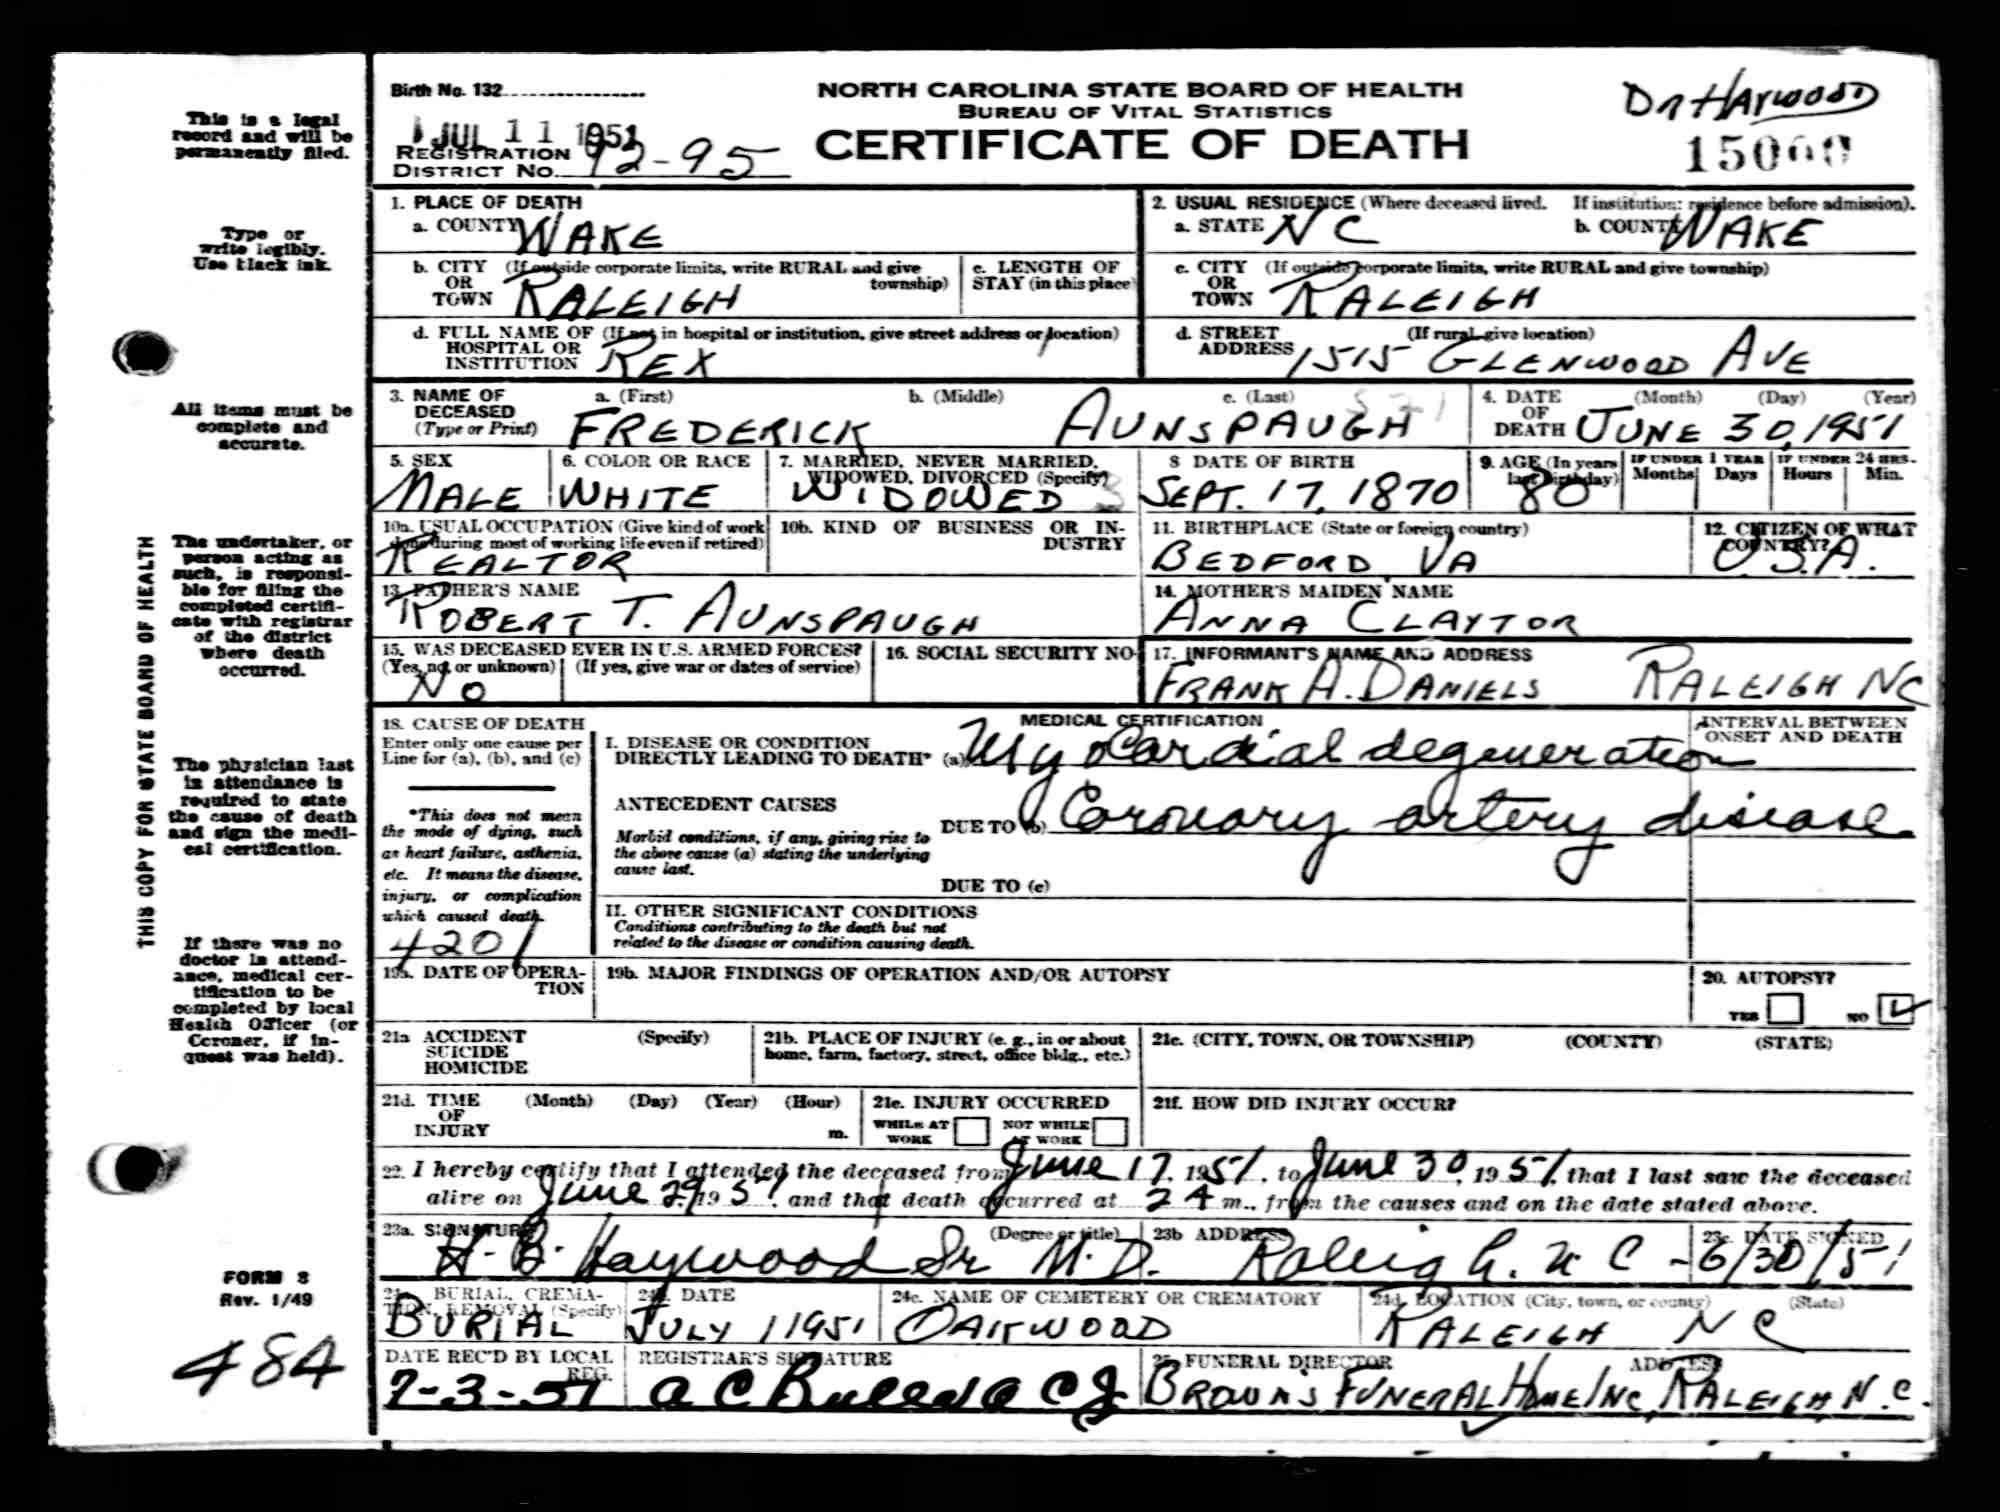 Birth No. 132
NORTH CAROLINA STATE BOARD OF HEALTH
BUREAU OF VITAL STATISTICS
CERTIFICATE OF DEATH
Dr HAYWOOD
JUL 11 1951
REGISTRATION DISTRICT No. 92-95
This is a legal record and will be permanently filed.
Type or write legibly. Use black ink.
All items must be complete and accurate.
The undertaker, or person acting as such, is responsible for filing the completed certificate with registrar of the district where death occurred.
The physician last in attendance is required to state the cause of death and sign the medical certification.
If there was no doctor in attendance, medical certification to be completed by local Health Officer (or Coroner, if inquest was held).
THIS COPY FOR STATE BOARD OF HEALTH
FORM 8
Rev. 1/49
484
1. PLACE OF DEATH
a. COUNTY WAKE
2. USUAL RESIDENCE (Where deceased lived. If institution: residence before admission).
a. STATE NC
b. COUNTY WAKE
b. CITY OR TOWN (If outside corporate limits, write RURAL and give township) RALEIGH
c. LENGTH OF STAY (in this place)
c. CITY OR TOWN (If outside corporate limits, write RURAL and give township) RALEIGH
d. FULL NAME OF HOSPITAL OR INSTITUTION (If not in hospital or institution, give street address or location) REX
d. STREET ADDRESS (If rural give location) 1515 GLENWOOD AVE
3. NAME OF DECEASED (Type or Print)
a. (First) FREDERICK
b. (Middle)
c. (Last) AUNSPAUGH
4. DATE OF DEATH (Month) (Day) (Year) JUNE 30, 1951
5. SEX MALE
6. COLOR OR RACE WHITE
7. MARRIED, NEVER MARRIED, WIDOWED, DIVORCED (Specify) WIDOWED 3
8 DATE OF BIRTH SEPT. 17, 1870
9. AGE (In years last birthday) 80
IF UNDER 1 YEAR Months Days
IF UNDER 24 HRS. Hours Min.
10a. USUAL OCCUPATION (Give kind of work done during most of working life even if retired) REALTOR
10b. KIND OF BUSINESS OR INDUSTRY
11. BIRTHPLACE (State or foreign country) BEDFORD VA
12. CITIZEN OF WHAT COUNTRY? U.S.A.
13. FATHER'S NAME ROBERT T. AUNSPAUGH
14. MOTHER'S MAIDEN NAME ANNA CLAYTOR
15. WAS DECEASED EVER IN U.S. ARMED FORCES?
(Yes, no, or unknown) (If yes, give war or dates of service) NO
16. SOCIAL SECURITY NO.
17. INFORMANT'S NAME AND ADDRESS
FRANK A. DANIELS RALEIGH NC
18. CAUSE OF DEATH
Enter only one cause per Line for (a), (b), and (c)
*This does not mean the mode of dying, such as heart failure, asthenia, etc. It means the disease, injury, or complication which caused death.
4201
MEDICAL CERTIFICATION
INTERVAL BETWEEN ONSET AND DEATH
I. DISEASE OR CONDITION DIRECTLY LEADING TO DEATH* (a) Myocardial degeneration
ANTECEDENT CAUSES
Morbid conditions, if any, giving rise to the above cause (a) stating the underlying cause last.
DUE TO (b) Coronary artery disease
DUE TO (c)
II. OTHER SIGNIFICANT CONDITIONS
Conditions contributing to the death but not related to the disease or condition causing death.
19a. DATE OF OPERATION
19b. MAJOR FINDINGS OF OPERATION AND/OR AUTOPSY
20. AUTOPSY?
YES NO
21a ACCIDENT SUICIDE HOMICIDE (Specify)
21b. PLACE OF INJURY (e. g., in or about home, farm, factory, street, office bldg., etc.)
21c. (CITY, TOWN, OR TOWNSHIP) (COUNTY) (STATE)
21d. TIME OF INJURY (Month) (Day) (Year) (Hour) m.
21e. INJURY OCCURRED
WHILE AT WORK NOT WHILE AT WORK
21f. HOW DID INJURY OCCUR?
22. I hereby certify that I attended the deceased from June 17, 1951, to June 30, 1951, that I last saw the deceased
alive on June 29, 1951, and that death occurred at 2 A m., from the causes and on the date stated above.
23a. SIGNATURE (Degree or title) H. B. Haywood Sr M.D.
23b ADDRESS Raleigh. N C -
23c. DATE SIGNED 6/30/51
24a. BURIAL, CREMATION, REMOVAL (Specify) BURIAL
24b. DATE JULY 1 1951
24c. NAME OF CEMETERY OR CREMATORY OAKWOOD
24d. LOCATION (City, town, or county) (State) RALEIGH NC
DATE REC'D BY LOCAL REG. 7-3-51
REGISTRAR'S SIGNATURE
25. FUNERAL DIRECTOR ADDRESS
BROWN'S FUNERAL HOME INC, RALEIGH, N.C.